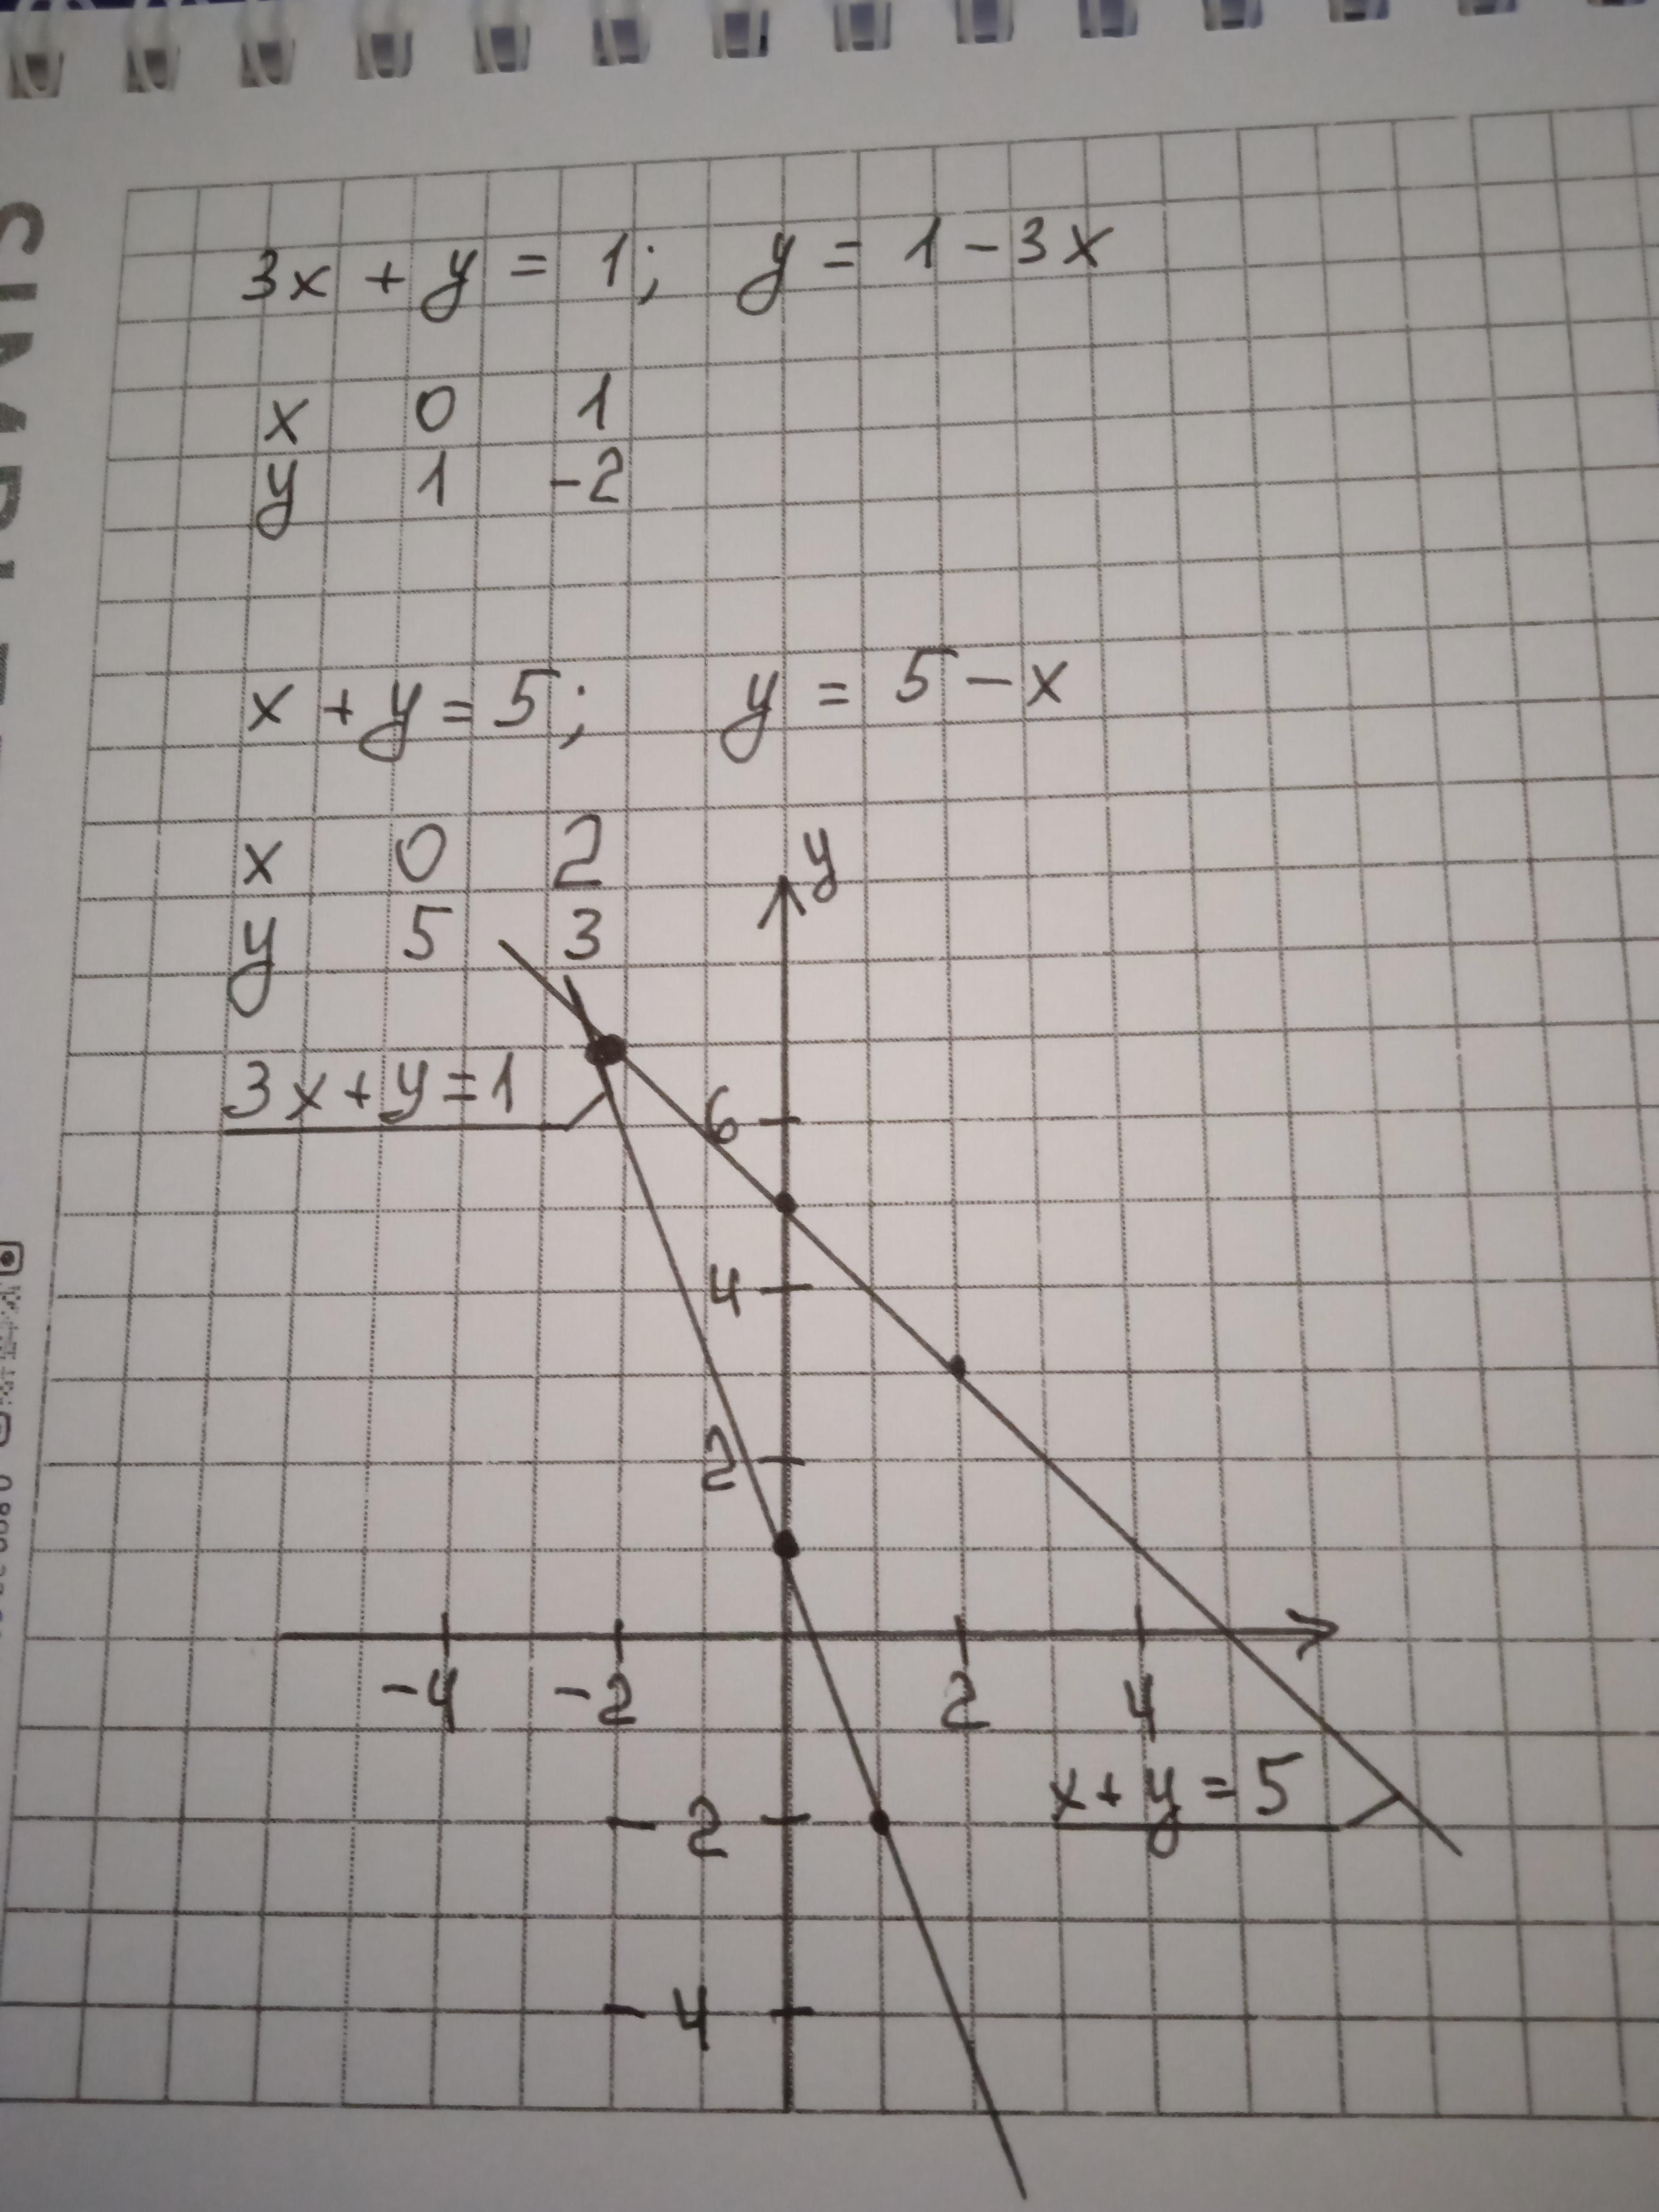 3x + y = 1; y = 1 - 3x
x 0 1
y 1 -2
x + y = 5; y = 5 - x
x 0 2
y 5 3
y
3x + y = 1
6
4
2
-4 -2 2 4
x + y = 5
-2
-4